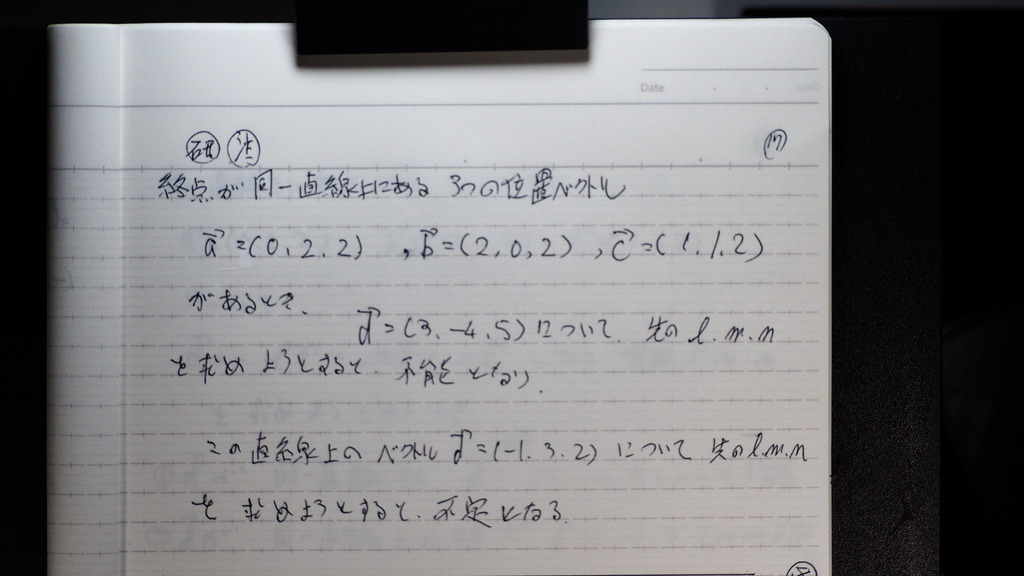 Date
研 法 (17)
終点が同一直線上にある 3つの位置ベクトル
a→=(0,2,2) , b→=(2,0,2) , c→=(1,1,2)
があるとき、
d→=(3,-4,5)について、先の l.m.n
を求めようとすると、不能となり、
この直線上のベクトル d→=(-1.3.2) について 先のl.m.n
を求めようとすると、不定となる。